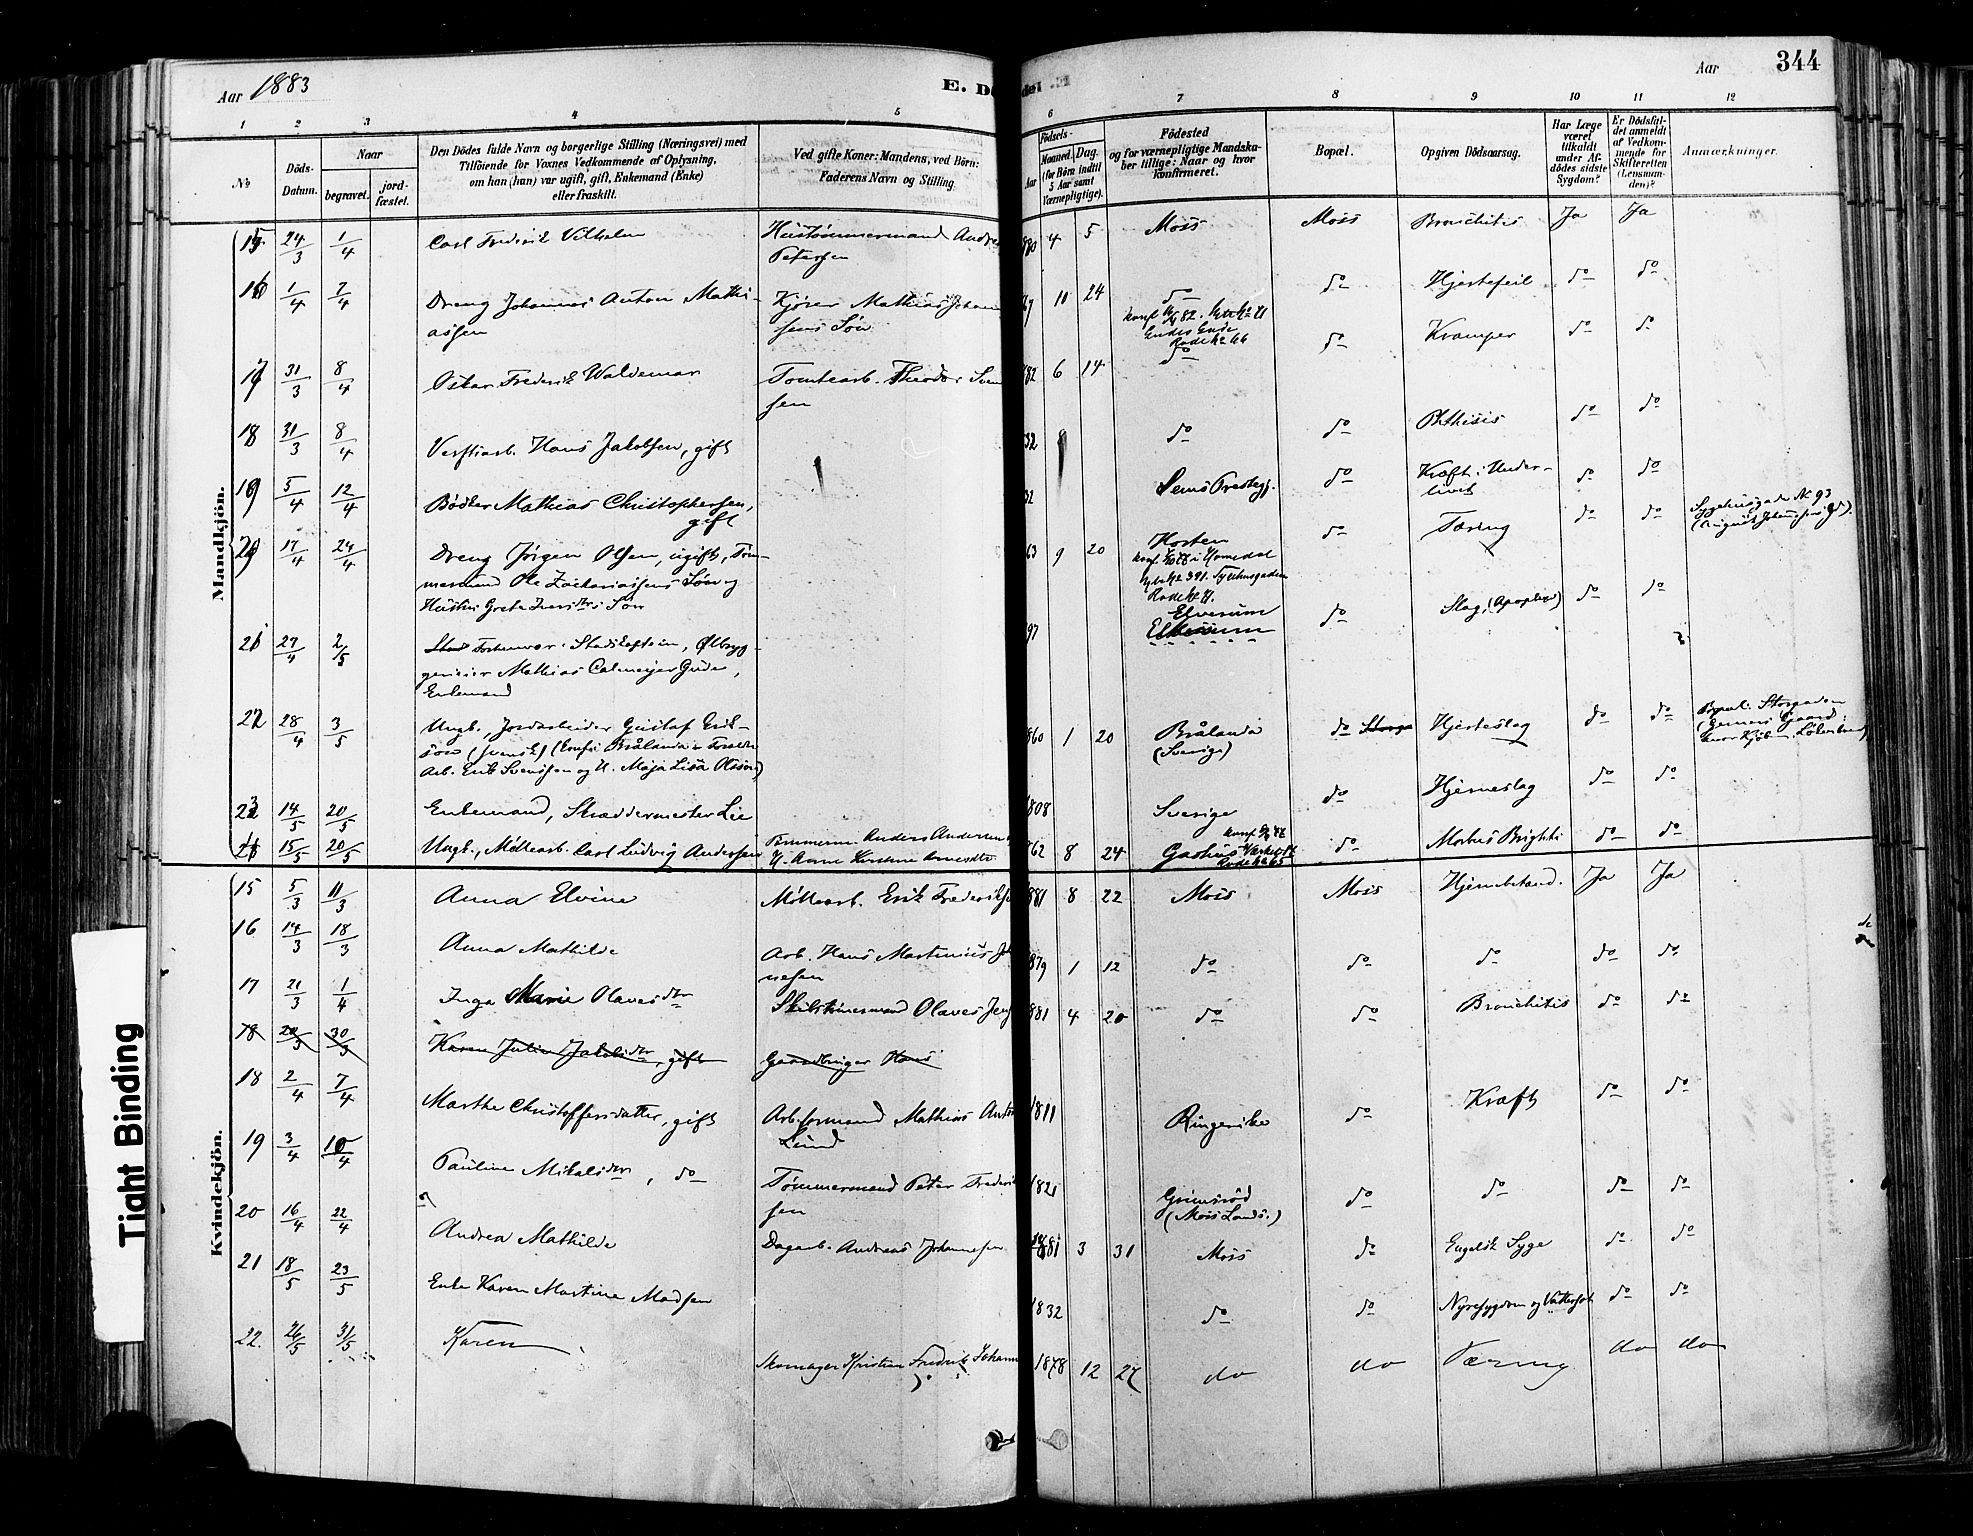 Aar 1883
E. Dö
del
Aar
344
1 2 3 4 5 6 7 8 9 10 11 12
No
Döds-Datum.
Naar
begravet.
jord-fæstet.
Den Dödes fulde Navn og borgerlige Stilling (Næringsvei) med
Tilföiende for Voxnes Vedkommende af Oplysning,
om han (hun) var ugift, gift, Enkemand (Enke)
eller fraskilt.
Ved gifte Koner: Mandens, ved Börn:
Faderens Navn og Stilling.
Födsels-
Aar
Maaned. Dag.
(for Börn indtil
5 Aar samt
Værnepligtige).
Födested
og for værnepligtige Mandska-
ber tillige: Naar og hvor
konfirmeret.
Bopæl.
Opgiven Dödsaarsag.
Har Læge
været
tilkaldt
under Af-
dödes sidste
Sygdom?
Er Dödsfal-
det anmeldt
af Vedkom-
mende for
Skifteretten
(Lensman-
den)?
Anmærkninger.
Mandkjön.
15 24/3 1/4 Carl Frederik Vilhelm Hustømmermand Andre 880 4 5 Moss Moss Bronchitis Ja Ja
Petersen
16 1/4 7/4 Dreng Johannes Anton Mathi- Kjører Mathias Johann 67 10 24 do do Hjertefeil do do
assen sens Søn
Rode No 66
17 31/3 8/4 Oskar Frederik Waldemar Tomtearb. Theodor Sven 82 6 14 do do Kramper do do
sen
18 31/3 8/4 Verftarb. Hans Jakobsen, gift 32 do do Phthisis do do
19 5/4 12/4 Bødker Mathias Christophersen, 32 Sems Prestegj. do Kræft i Under- do do
gift livet
20 17/4 24/4 Dreng Jørgen Olsen, ugift, Tøm- 63 9 20 Horten do Tæring do do Sygehusgade No 93
mermand Ole Zachariassens Søn og
Hustru Grete Iversdtrs Søn
Rode No 7.
21 27/4 2/5 Stadshauptmand, Ølbryg- 97 Elverum do Slag, (Apoplexi) do do
geri eier Mathias Calmeyer Gude, Elverum
Enkemand
22 28/4 3/5 Ungk., Jordarbeider Gustaf Erik- 860 1 20 Brålanda do Hjerteslag do do Bopæl: Storgaden
son (svensk) (konf. i Brålanda. Forældre (Sverige)
Arb. Erik Svensson og H. Maja Lisa Olsson)
23 14/5 20/5 Enkemand, Skræddermester Lie 1808 Sverige do Hjerneslag do do
15/5 20/5 Ungk., Møllearb. Carl Ludvig Andersen Tømmerm. Anders Andersen 862 8 24 do Morbus Brightii do do
Kvindekjön.
15 5/3 11/3 Anna Elvine Møllearb. Erik Frederiks 881 8 22 Moss Moss Hjernebetænd. Ja Ja
16 14/3 18/3 Anna Mathilde Arb. Hans Martinius Jo 879 1 12 do do do do do
nesen
17 21/3 1/4 Inga Marie Olavesdtr Skibstømmermand Olaves Jen 881 4 20 do do Bronchitis do do
18 29/3 30/3 Karen Julie Jakobsdtr, gift Gaardbruger Hans
18 2/4 7/4 Marthe Christoffersdatter, gift Arb.formand Mathias Anton 1811 Ringerike do Kræft do do
Lund
19 3/4 10/4 Pauline Mikalsdtr, do Tømmermand Peter Frederik 1821 Grimsrød do do do do
sen (Moss Lands.)
20 16/4 22/4 Andrea Mathilde Dagarb. Andreas Johannesen 1881 3 31 Moss do Engelsk Syge do do
21 18/5 23/5 Enke Karen Martine Madsen 1832 do do Nyresygdom og Vattersot do do
22. 26/5 31/5 Karen Skomager Kristian Fredrik Johann 1878 12 27 do do Tæring do do
Tight Binding